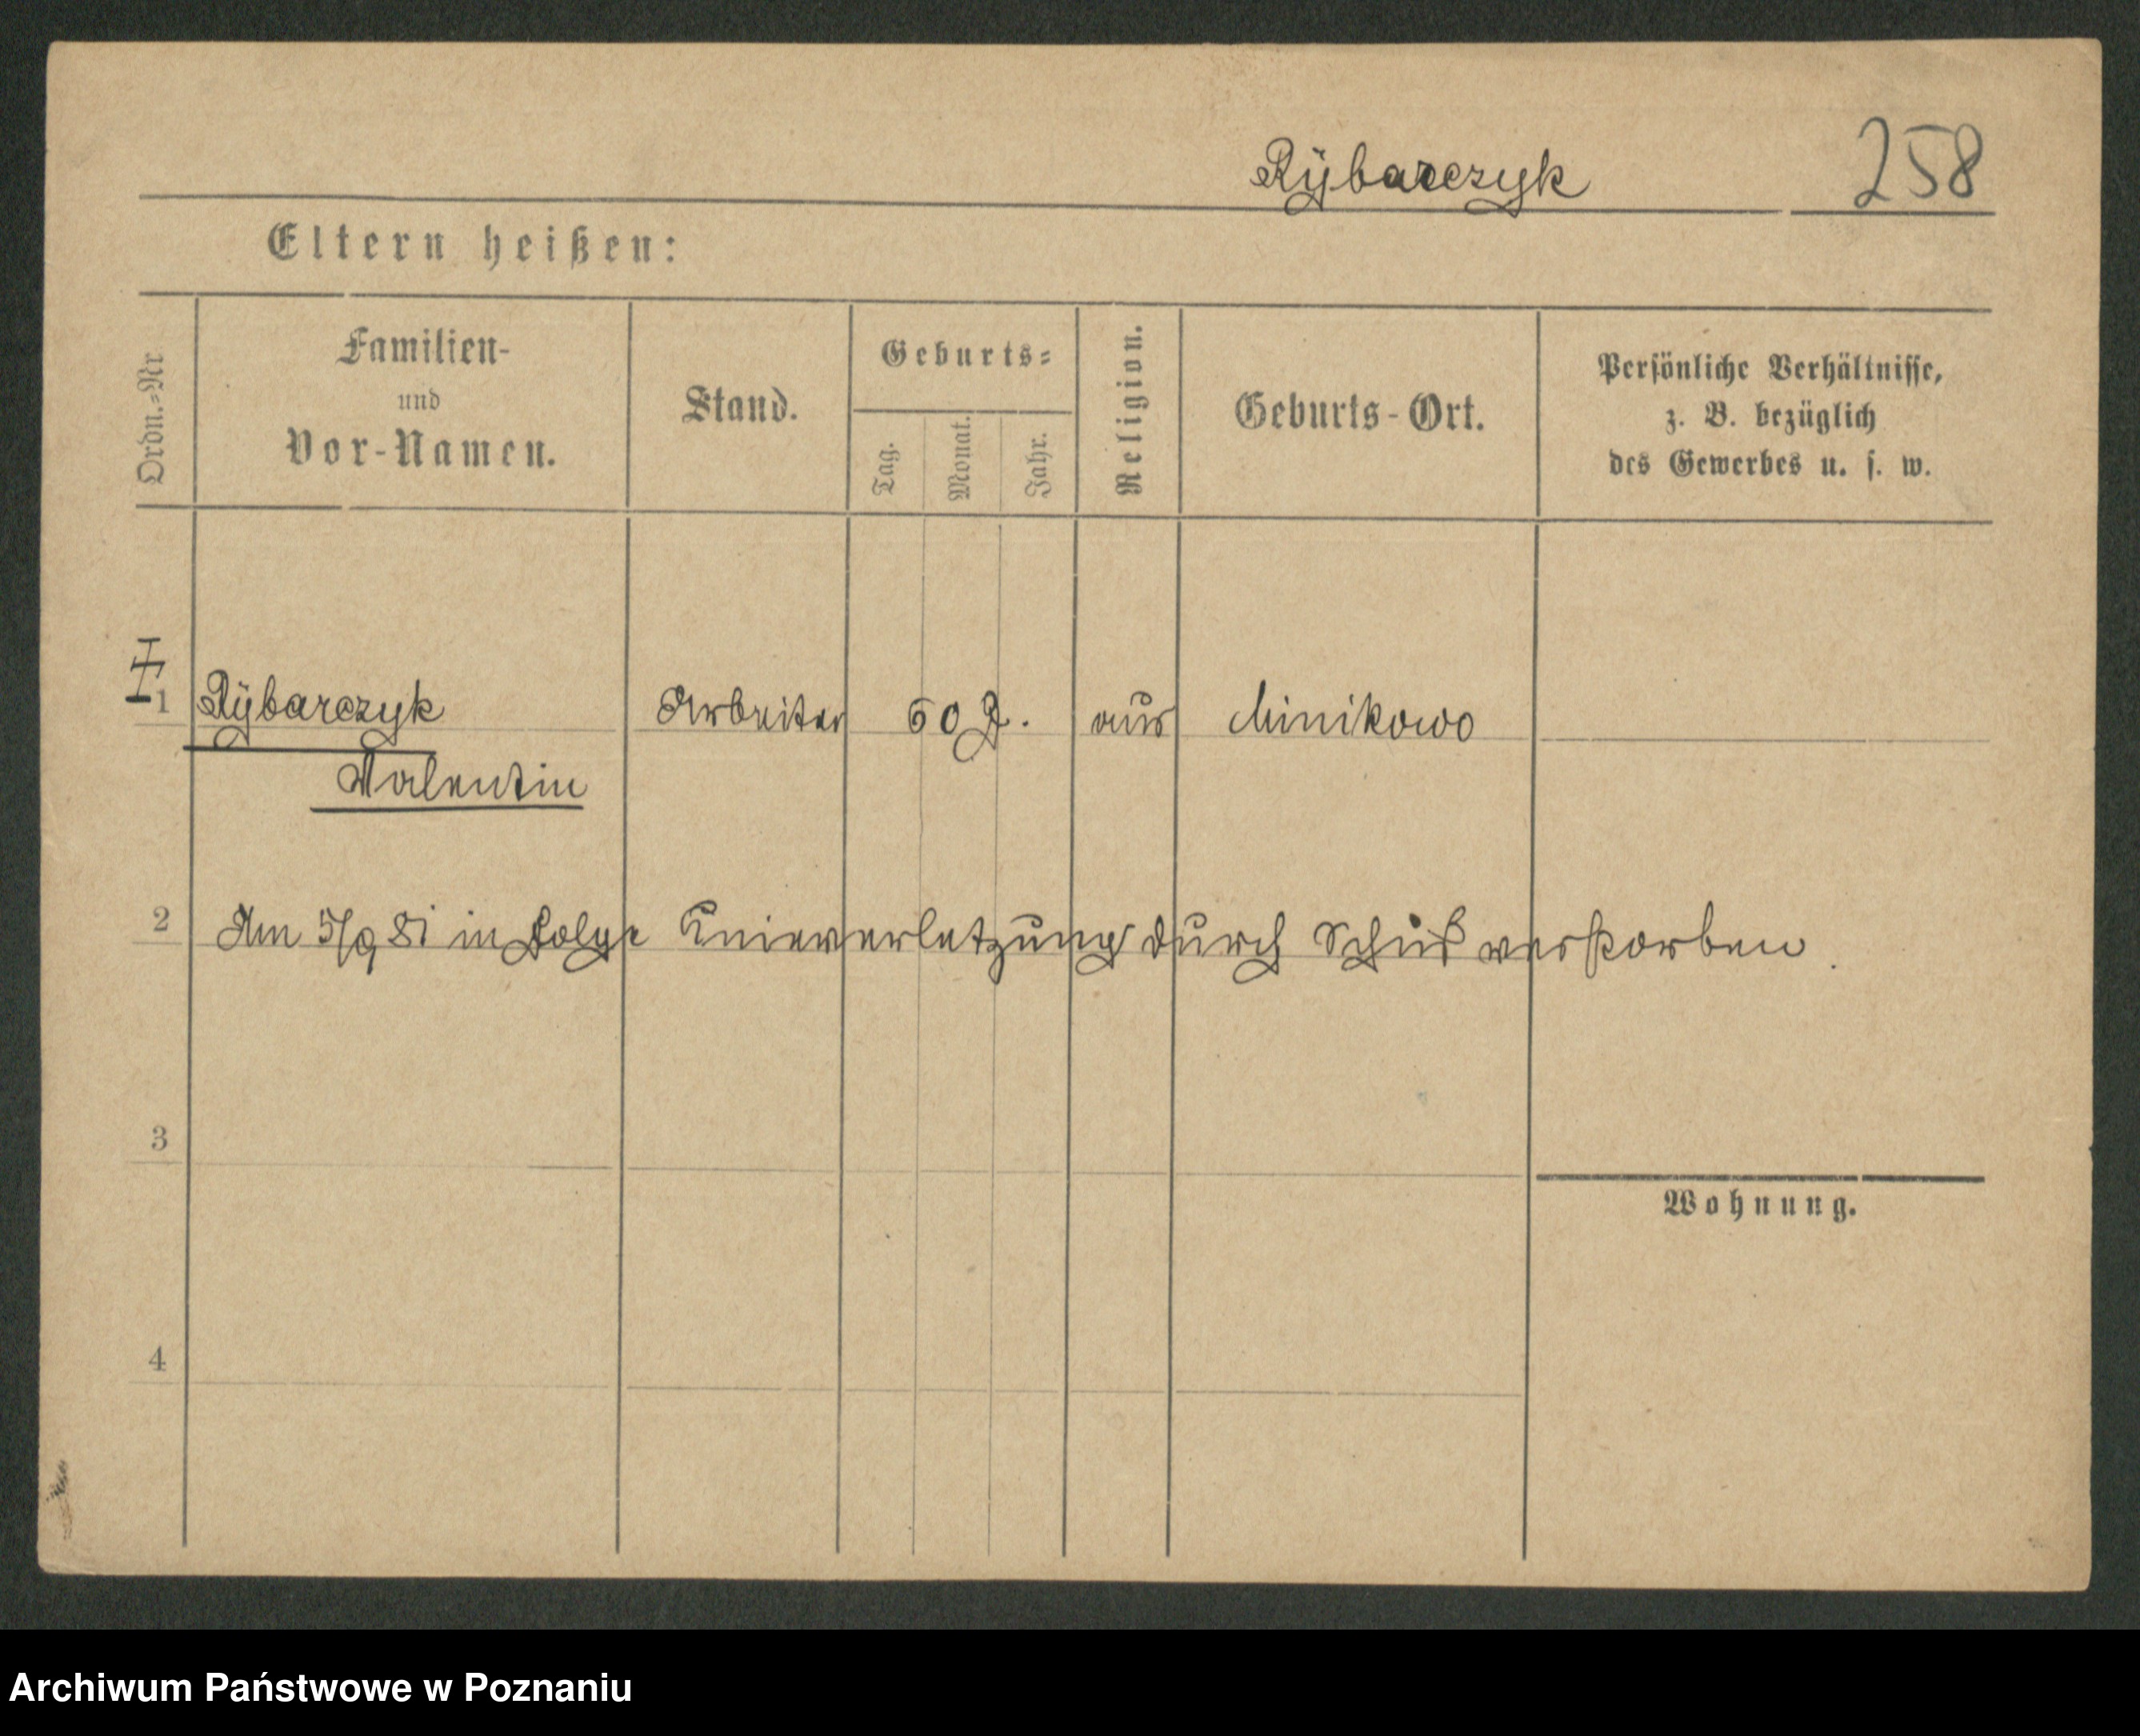 Rÿbarczyk 258
Eltern heißen:
Ordn.-Nr
Familien-
und
Vor-Namen.
Stand.
Geburts-
Tag.
Monat.
Jahr.
Religion.
Geburts-Ort.
Persönliche Verhältnisse,
z. B. bezüglich
des Gewerbes u. s. w.
1 Rÿbarczyk Arbeiter 60 J. aus Minikowo
Valentin
2 Am 5/9 81 in Folge Knieverletzung durch Schuß verstorben.
3
Wohnung.
4
Archiwum Państwowe w Poznaniu